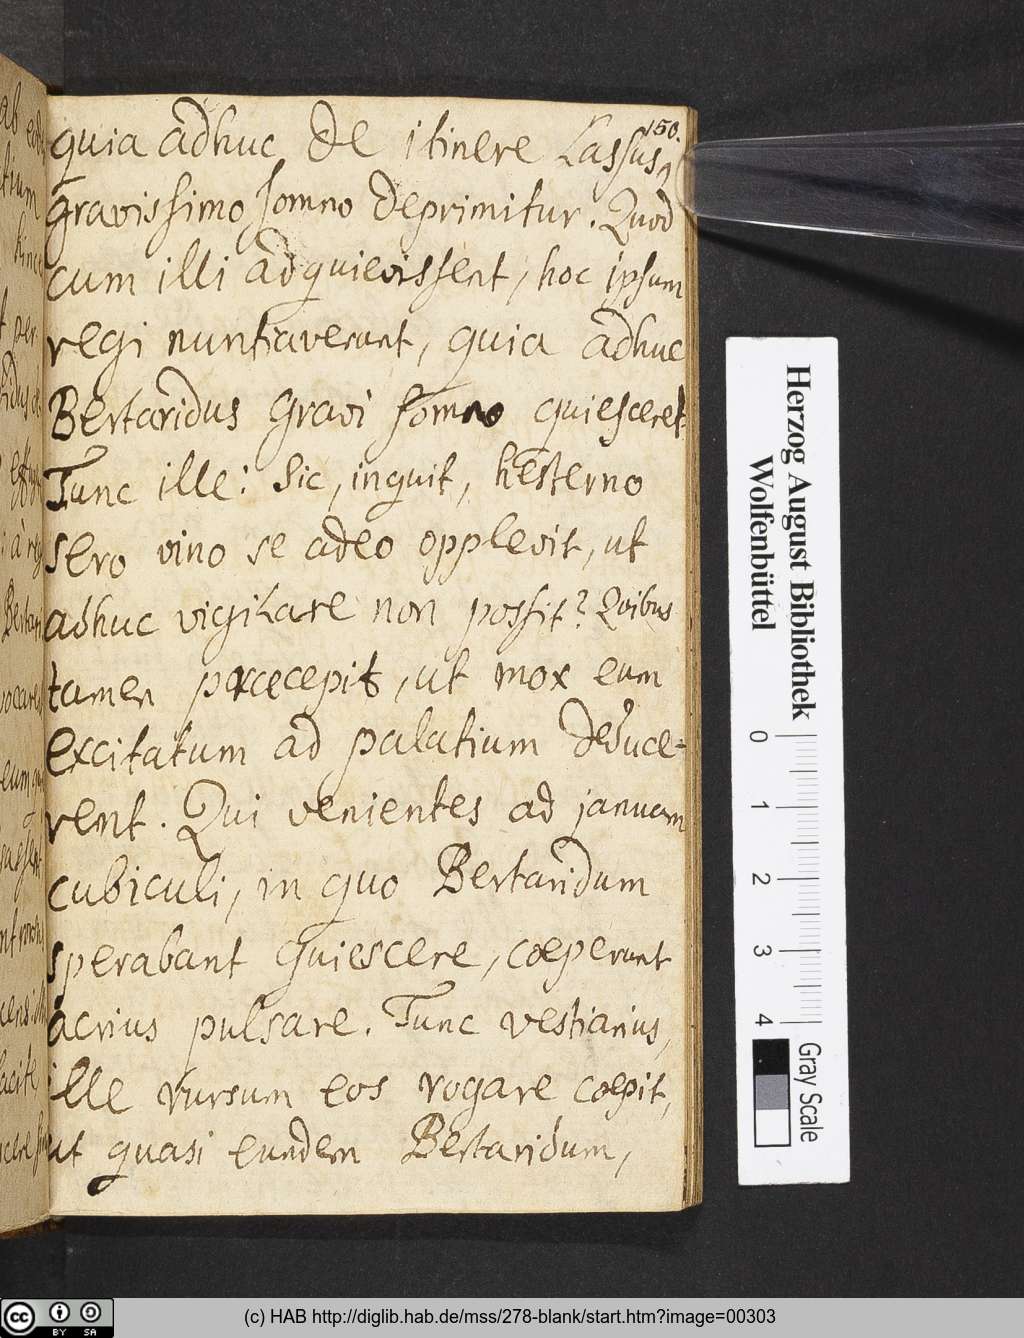 150.
quia adhuc de itinere Lassus,
gravissimo somno deprimitur. Quod
cum illi adquievissent, hoc ipsum
regi nuntiaverunt, quia adhuc
Bertaridus gravi somno quiesceret.
Tunc ille: Sic, inquit, hesterno
sero vino se adeo opplevit, ut
adhuc vigilare non possit? Quibus
tamen præcepit, ut mox eum
excitatum ad palatium deduce-
rent. Qui venientes ad januam
cubiculi, in quo Bertaridum
sperabant quiescere, cœperunt
acrius pulsare. Tunc vestiarius,
ille rursum eos rogare cœpit,
ut quasi eundem Bertaridum,
Herzog August Bibliothek
Wolfenbüttel
0 1 2 3 4
Gray Scale
cc BY SA
(c) HAB http://diglib.hab.de/mss/278-blank/start.htm?image=00303